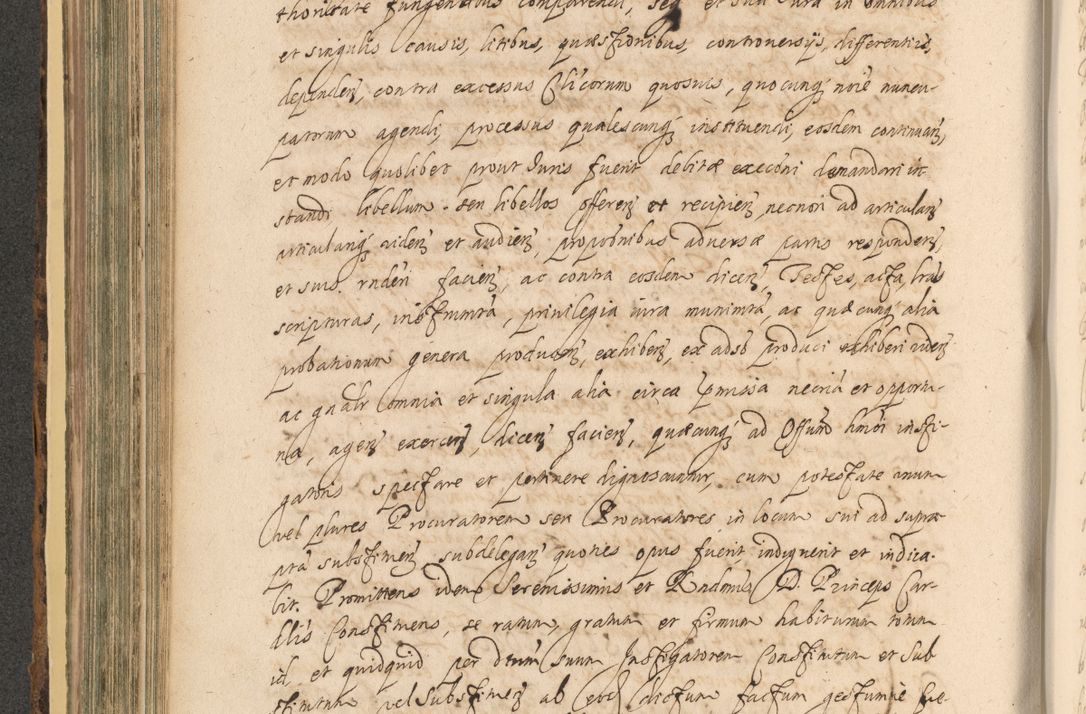 thoritate fungentibus comparendi, seq et sua iura in omnibus
et singulis causis, litibus, quæstionibus, controversijs, differentiis,
dependen, contra excessus Clicorum quosuis, quocunq noie nuncu-
patorum agendi, processus qualescunq instituendi, eosdem continuan,
et modo quolibet prout Iuris fuerit debitæ execõni demandari in
standi libellum seu libellos offeren et recipien necnon ad articulan
articulariq viden et audien, propõnibus adversæ partis responden,
et suis rndēri facien, ac contra eosdem dicen, Testes, acta, lras
scripturas, instrumta, privilegia iura munimta, ac quæcunq alia
probationum genera producen, exhiben, ex adso produci exhiberi viden
ac gnalr omnia et singula alia circa pmissa necria et opportu-
na, agen exercen, dicen facien, quæcunq ad Offium hmōi insti-
gatoris spectare et pertinere dignoscuntur, cum potestate unum
vel plures Procuratorem seu Procuratores in locum sui ad supra
pta substituen subdelegan quoties opus fuerit indiguerit et indica-
bit. Promittens idem Serenissimus et Rndmus D. Princeps Car-
dlis Constituens, se ratum, gratum et firmum habiturum totum
id et quidquid per dtum suum Instigatorem Constitutum et Sub
stitutum vel Substituen ab eod dictum factum gestumue fue-